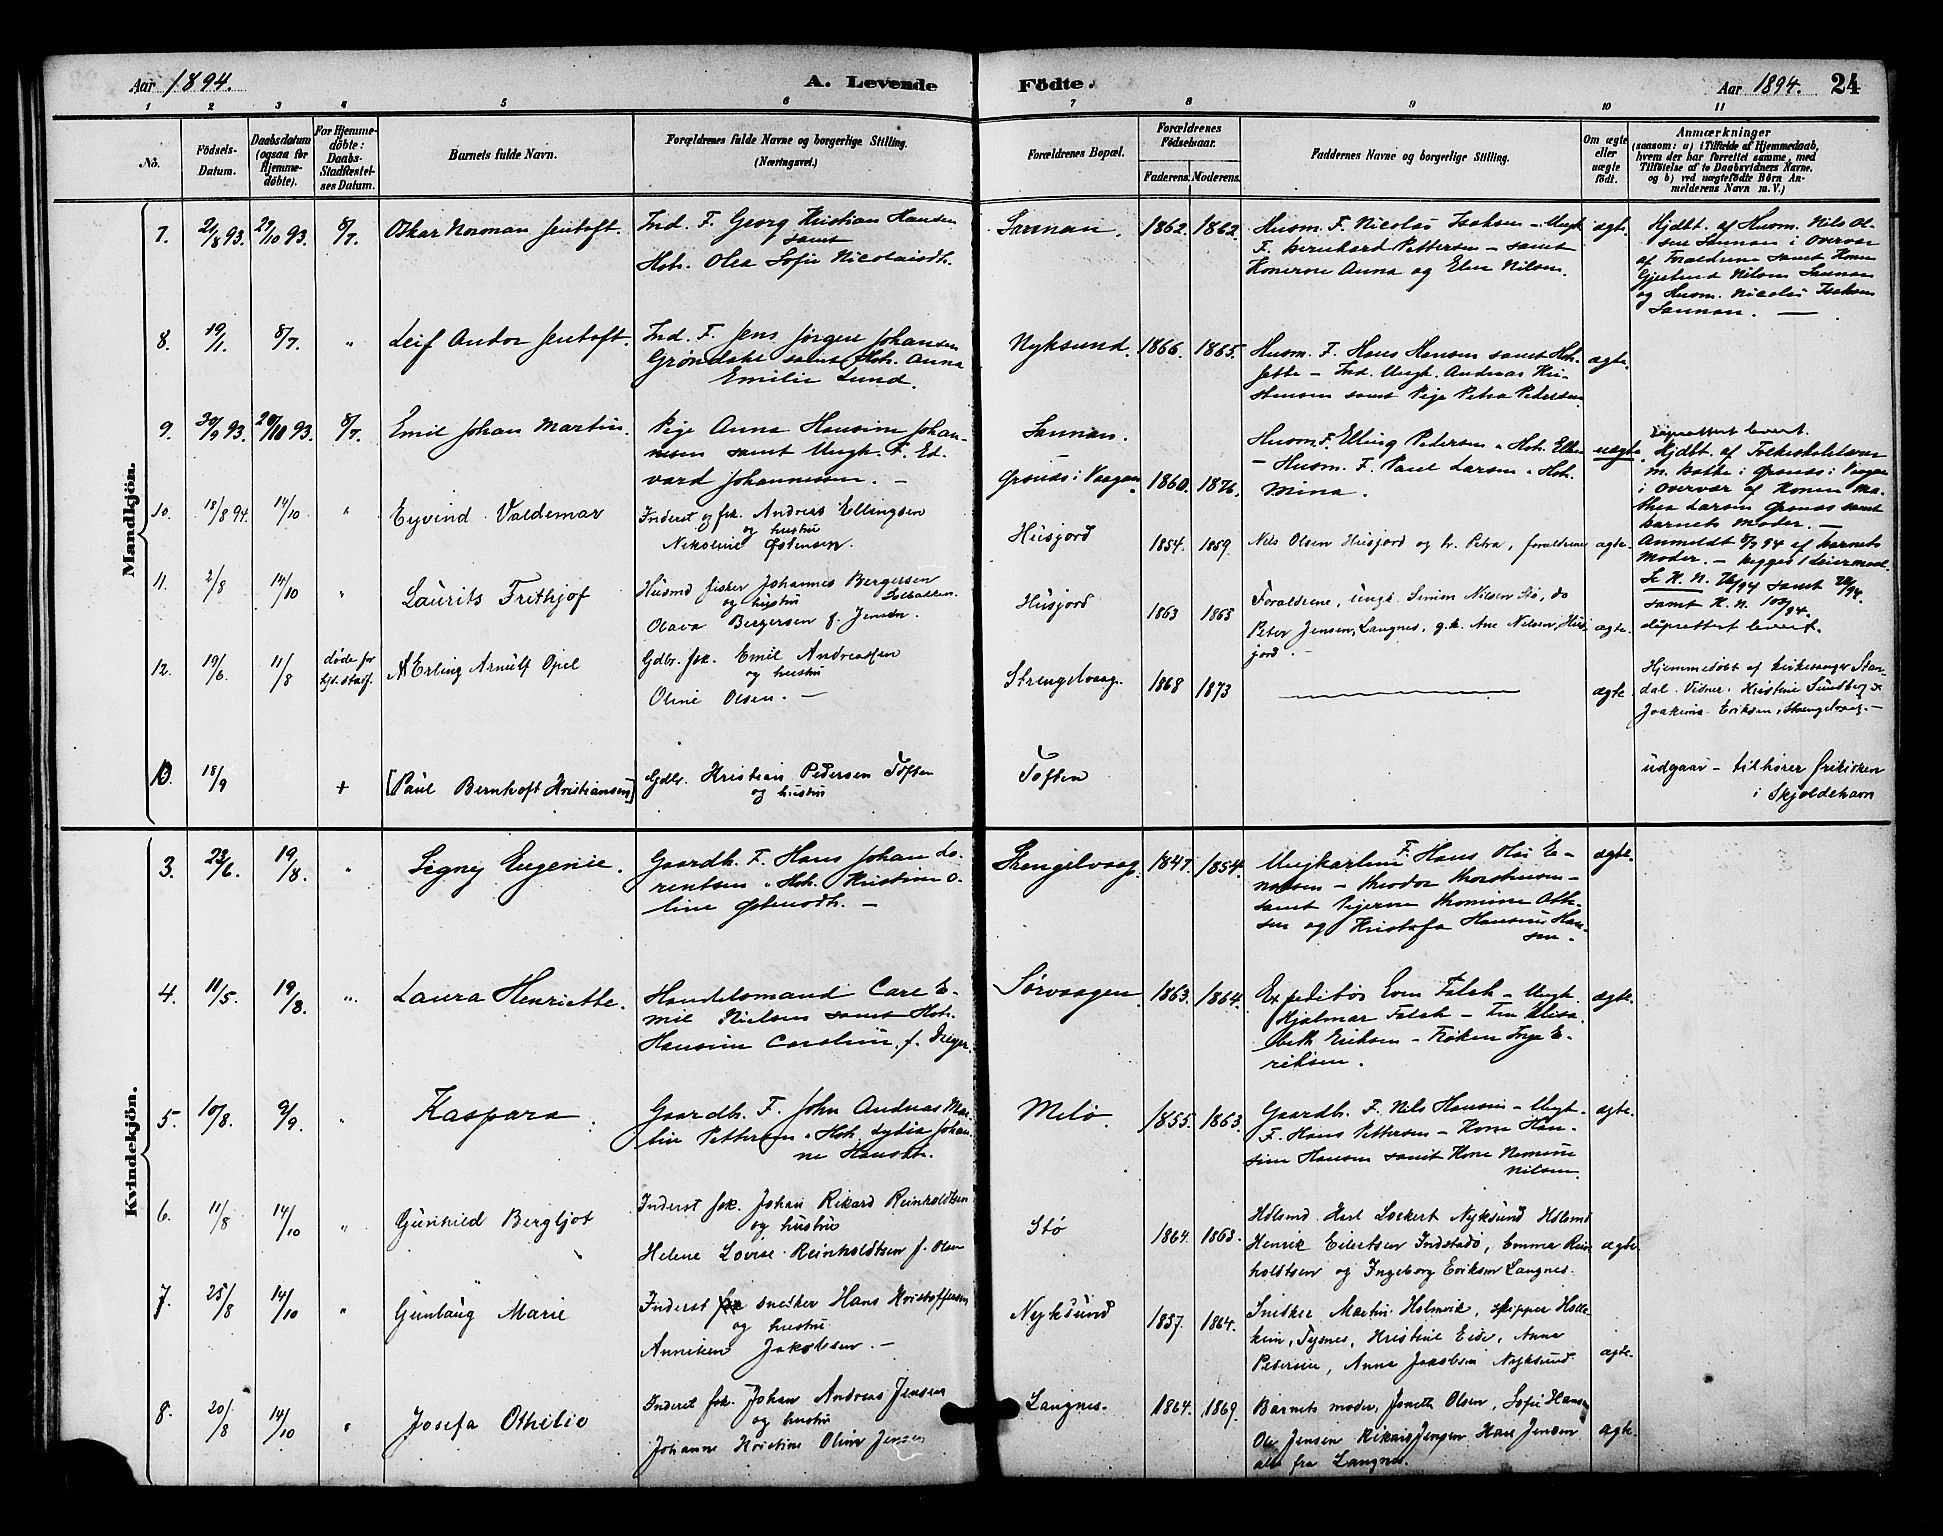 Aar 1894.
A. Levende Fødte.
Aar 1894. 24
1 2 3 4 5 6 7 8 9 10 11
No.
Fødsels-Datum.
Daabsdatum (ogsaa for Hjemme-døbte).
For Hjemme-døbte: Daabs-Stadfæstel-ses Datum.
Barnets fulde Navn.
Forældrenes fulde Navne og borgerlige Stilling. (Næringsvei.)
Forældrenes Bopæl.
Forældrenes Fødselsaar.
Faderens. Moderens.
Faddernes Navne og borgerlige Stilling.
Om ægte eller uægte født.
Anmærkninger
(saasom: a) i Tilfælde af Hjemmedaab,
hvem der har forrettet samme, med
Tilføielse af to Daabsvidners Navne.
og b) ved uægtefødte Børn An-
melderens Navn m. V.)
Mandkjön.
7. 21/8 93. 29/10 93. 8/7. Oskar Norman Jentoft. Ind. F. Georg Kristian Hansen
samt
Hstr. Olea Sofie Nicolaisdtr.
Sannan. 1862. 1862. Husm. F. Nicolai Isaksen – Ungk.
F. Bernhard Pettersen – samt
Konerne Anna og Elen Nilsen. ægte.
Hjdbt. af Husm. Nils Ol-
sen Sannan i Overvær
af Forældrene samt Konen
Gjertrud Nilsen Sannan
og Husm. Nicolai Isaksen
Sannan. —
8. 19/1. 8/7. " Leif Andor Jentoft. Ind. F. Jens Jørgen Johansen
Grøndahl samt Hstr. Anna
Emilie Lund.
Nyksund. 1866. 1865. Husm. F. Hans Hansen samt Hstr.
Jette – Ind. Ungk. Andreas Kri-
stensen samt Pige Petra Pedersen. ægte.
9. 30/9 93. 20/10 93. 8/7. Emil Johan Martin. Pige Anna Hansine Johan-
nesen samt Ungk. F. Ed-
vard Johannessen. —
Sannan.
Grønds i Vaagan. 1860. 1876. Husm. F. Elling Pedersen " Hstr. Ellen
– Husm. F. Paul Larsen " Hstr.
Mina. uægte.
Hjdbt. af Folkeskolelærer
i Overvær af Konen Ma-
thea Larsen Grønds samt
barnets Moder. —
Anmeldt 8/7 94 af barnets
Moder. –
10. 18/8 94. 14/10 " Eyvind Valdemar Inderst og fsk. Andreas Ellingsen
og hustru
Nikoline Østensen.
Husjord 1854. 1859. Nils Olsen Husjord og h. Petra, forældrene ægte.
11. 2/8 14/10 " Laurits Frithjof Husmd fisker Johannes Bergersen
og hustru Solbakken.
Olava Bergersen f. Jensen.
Husjord 1863 1863 Forældrene, ungk. Simon Nilsen Stø, do
Peter Jensen, Langnes, g.k. Ane Nilsen, Hus-
jord. – ægte.
12. 19/6. 11/8 døde før
Erling Arnulf Opel Gdbr. fsk. Emil Andreassen
og hustru
Oline Olsen. —
Strengelvaag. 1868 1873 ægte
Hjemmedøbt af kirkesanger Stan-
dal. Vidner: Kristine Sundberg &
Joakima Eriksen, Strengelvaag. –
10. 18/9 + [Paul Bernhoft Kristiansen] Gdbr. Kristian Pedersen Toften
og hustru
Toften
udgaar – tilhører frikirken
i Skjoldehavn
Kvindekjön.
3. 23/6. 19/8. " Signy Eugenie. Gaardb. F. Hans Johan Lo-
rentsen " Hstr. Kristine O-
line Østensdtr. —
Strengelvaag. 1847. 1854. Ungkarlene F. Hans Olai E-
noksen – Theodor Thorstensen –
samt Pigerne Thomine Ott-
sen og Kristofa Hansine Han-
sen. ægte.
4. 11/5. 19/8. " Laura Henriette. Handelsmand Carl E-
mil Nielsen samt Hstr.
Hansine Caroline f. Dreyer.
Sørvaagen. 1863. 1864. Expeditør Even Falch – Ungk.
Hjalmar Falch – Fru Elisa-
beth Eriksen – Frøken Inga E-
riksen. ægte.
5. 10/8. 9/9. " Kaspara. Gaardb. F. John Andreas Mar-
tin Pettersen " Hstr. Lydia Johan-
ne Hansdtr.
Melø. 1855. 1863. Gaardb. F. Nils Hansen – Ungk.
F. Hans Pettersen – Kone Han-
sine Hansen samt Kone Nomine
Nilsen. ægte.
6. 11/8 14/10 " Gunhild Bergljot Inderst fsk. Johan Rikard Reinholdtsen
og hustru
Helene Lovise Reinholdtsen f. Olsen
Stø 1864. 1863. Hdlsmd. Karl Lockert Nyksund Hdlsmd
Henrik Eilertsen Indstadø, Emma Rein-
holdtsen og Ingeborg Eriksen Langnes. ægte
7. 25/8 14/10 " Gunlaug Marie Inderst snedker Hans Kristoffersen
og hustru
Anniken Jakobsen. —
Nyksund 1857. 1864. Snedker Martin Holmvik, skipper Halle-
keim, Tysnes, Kristine Eide, Anna
Petersen, Anna Jakobsen Nyksund. ægte.
8. 20/8 14/10 " Josefa Othilie Inderst fsk. Johan Andreas Jensen
og hustru
Johanne Kristine Oline Jensen
Langnes. 1864. 1869. Barnets moder, Jonetta Olsen, Sofie Hansen
Ole Jensen Rikard Jensen Hans Jensen
alle fra Langnes. ægte.